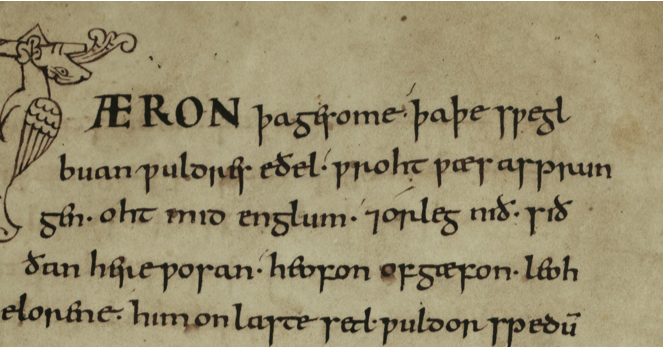 ÆRON þagesome· þaþe sƿegl
buan ƿuldres eðel· ƿroht ƿæs asprun
gen· oht mid englum· ⁊orleg nið· sið
ðan hereƿosan· heofon ofgæfon· leoh
elorene· him on laste setl· ƿuldor spedū